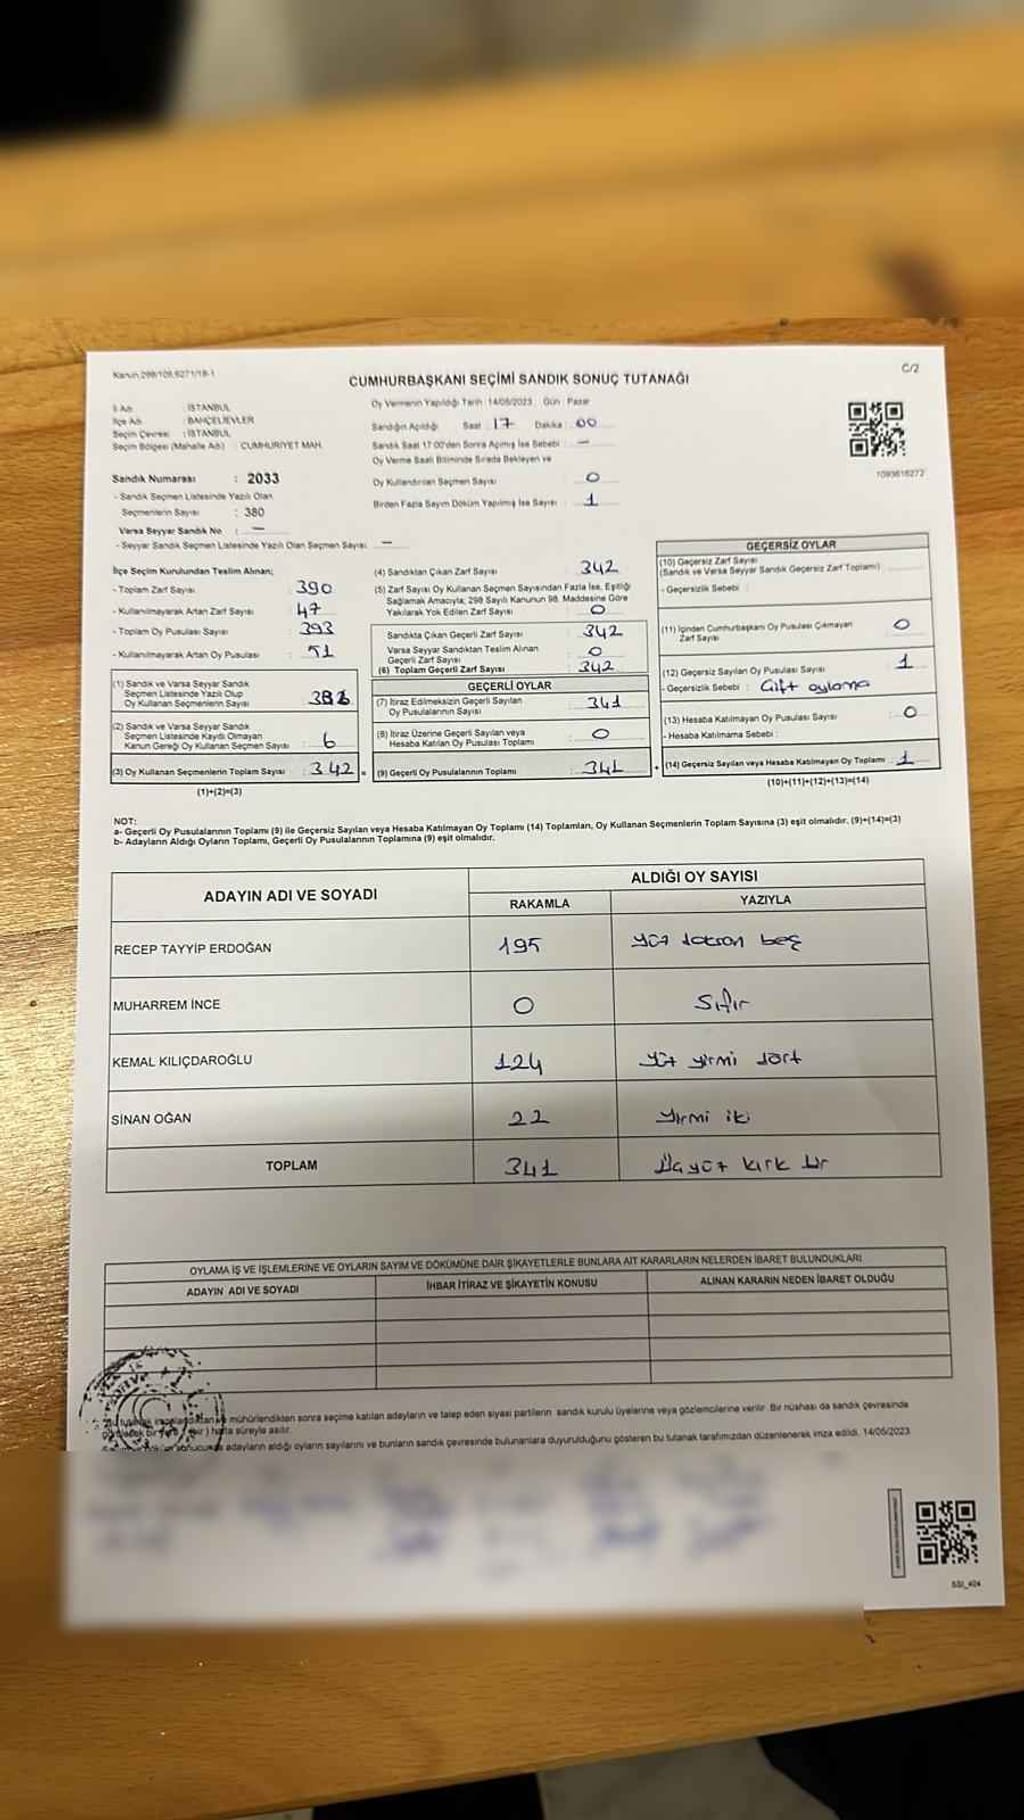 Kanun:298/109,6271/18-1
C/2
CUMHURBAŞKANI SEÇİMİ SANDIK SONUÇ TUTANAĞI
İl Adı : İSTANBUL
İlçe Adı : BAHÇELİEVLER
Seçim Çevresi : İSTANBUL
Seçim Bölgesi (Mahalle Adı) : CUMHURİYET MAH.
Sandık Numarası : 2033
- Sandık Seçmen Listesinde Yazılı Olan
Seçmenlerin Sayısı : 380
Varsa Seyyar Sandık No : —
- Seyyar Sandık Seçmen Listesinde Yazılı Olan Seçmen Sayısı —
Oy Vermenin Yapıldığı Tarih : 14/05/2023 Gün : Pazar
Sandığın Açıldığı Saat : 17 Dakika : 00
Sandık Saat 17:00'den Sonra Açılmış İse Sebebi : —
Oy Verme Saati Bitiminde Sırada Bekleyen ve
Oy Kullandırılan Seçmen Sayısı : 0
Birden Fazla Sayım Döküm Yapılmış İse Sayısı : 1
1093616272
İlçe Seçim Kurulundan Teslim Alınan;
- Toplam Zarf Sayısı : 390
- Kullanılmayarak Artan Zarf Sayısı : 47
- Toplam Oy Pusulası Sayısı : 393
- Kullanılmayarak Artan Oy Pusulası : 51
(1) Sandık ve Varsa Seyyar Sandık
Seçmen Listesinde Yazılı Olup
Oy Kullanan Seçmenlerin Sayısı :
(2) Sandık ve Varsa Seyyar Sandık
Seçmen Listesinde Kaydı Olmayan
Kanun Gereği Oy Kullanan Seçmen Sayısı : 6
(3) Oy Kullanan Seçmenlerin Toplam Sayısı : 342 =
(1)+(2)=(3)
(4) Sandıktan Çıkan Zarf Sayısı : 342
(5) Zarf Sayısı Oy Kullanan Seçmen Sayısından Fazla İse, Eşitliği
Sağlamak Amacıyla; 298 Sayılı Kanunun 98. Maddesine Göre
Yakılarak Yok Edilen Zarf Sayısı : 0
Sandıkta Çıkan Geçerli Zarf Sayısı : 342
Varsa Seyyar Sandıktan Teslim Alınan
Geçerli Zarf Sayısı : 0
(6) Toplam Geçerli Zarf Sayısı : 342
GEÇERLİ OYLAR
(7) İtiraz Edilmeksizin Geçerli Sayılan
Oy Pusulalarının Sayısı : 341
(8) İtiraz Üzerine Geçerli Sayılan veya
Hesaba Katılan Oy Pusulası Toplamı : 0
(9) Geçerli Oy Pusulalarının Toplamı : 341 +
GEÇERSİZ OYLAR
(10) Geçersiz Zarf Sayısı
(Sandık ve Varsa Seyyar Sandık Geçersiz Zarf Toplamı) :
- Geçersizlik Sebebi :
(11) İçinden Cumhurbaşkanı Oy Pusulası Çıkmayan
Zarf Sayısı : 0
(12) Geçersiz Sayılan Oy Pusulası Sayısı : 1
- Geçersizlik Sebebi : Çift oylama
(13) Hesaba Katılmayan Oy Pusulası Sayısı : 0
- Hesaba Katılmama Sebebi :
(14) Geçersiz Sayılan veya Hesaba Katılmayan Oy Toplamı : 1
(10)+(11)+(12)+(13)=(14)
NOT:
a- Geçerli Oy Pusulalarının Toplamı (9) ile Geçersiz Sayılan veya Hesaba Katılmayan Oy Toplamı (14) Toplamları, Oy Kullanan Seçmenlerin Toplam Sayısına (3) eşit olmalıdır. (9)+(14)=(3)
b- Adayların Aldığı Oyların Toplamı, Geçerli Oy Pusulalarının Toplamına (9) eşit olmalıdır.
ADAYIN ADI VE SOYADI
ALDIĞI OY SAYISI
RAKAMLA YAZIYLA
RECEP TAYYİP ERDOĞAN 195 yüz doksan beş
MUHARREM İNCE 0 Sıfır
KEMAL KILIÇDAROĞLU 124 yüz yirmi dört
SİNAN OĞAN 22 yirmi iki
TOPLAM 341 Üçyüz kırk bir
OYLAMA İŞ VE İŞLEMLERİNE VE OYLARIN SAYIM VE DÖKÜMÜNE DAİR ŞİKAYETLERLE BUNLARA AİT KARARLARIN NELERDEN İBARET BULUNDUKLARI
ADAYIN ADI VE SOYADI İHBAR İTİRAZ VE ŞİKAYETİN KONUSU ALINAN KARARIN NEDEN İBARET OLDUĞU
mühürlendikten sonra seçime katılan adayların ve talep eden siyasi partilerin sandık kurulu üyelerine veya gözlemcilerine verilir. Bir nüshası da sandık çevresinde
hafta süreyle asılır.
adayların aldığı oyların sayılarını ve bunların sandık çevresinde bulunanlara duyurulduğunu gösteren bu tutanak tarafımızdan düzenlenerek imza edildi. 14/05/2023
SSI_404